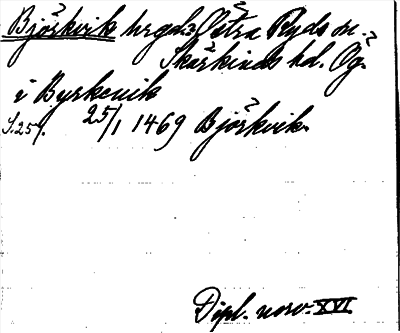 Björkvik hrgd. Östra Ryds sn.
Skärkinds hd. Ög.
i Byrkeuik
S. 25/. 25/1 1469 Björkvik.
Dipl. norv. XVI.